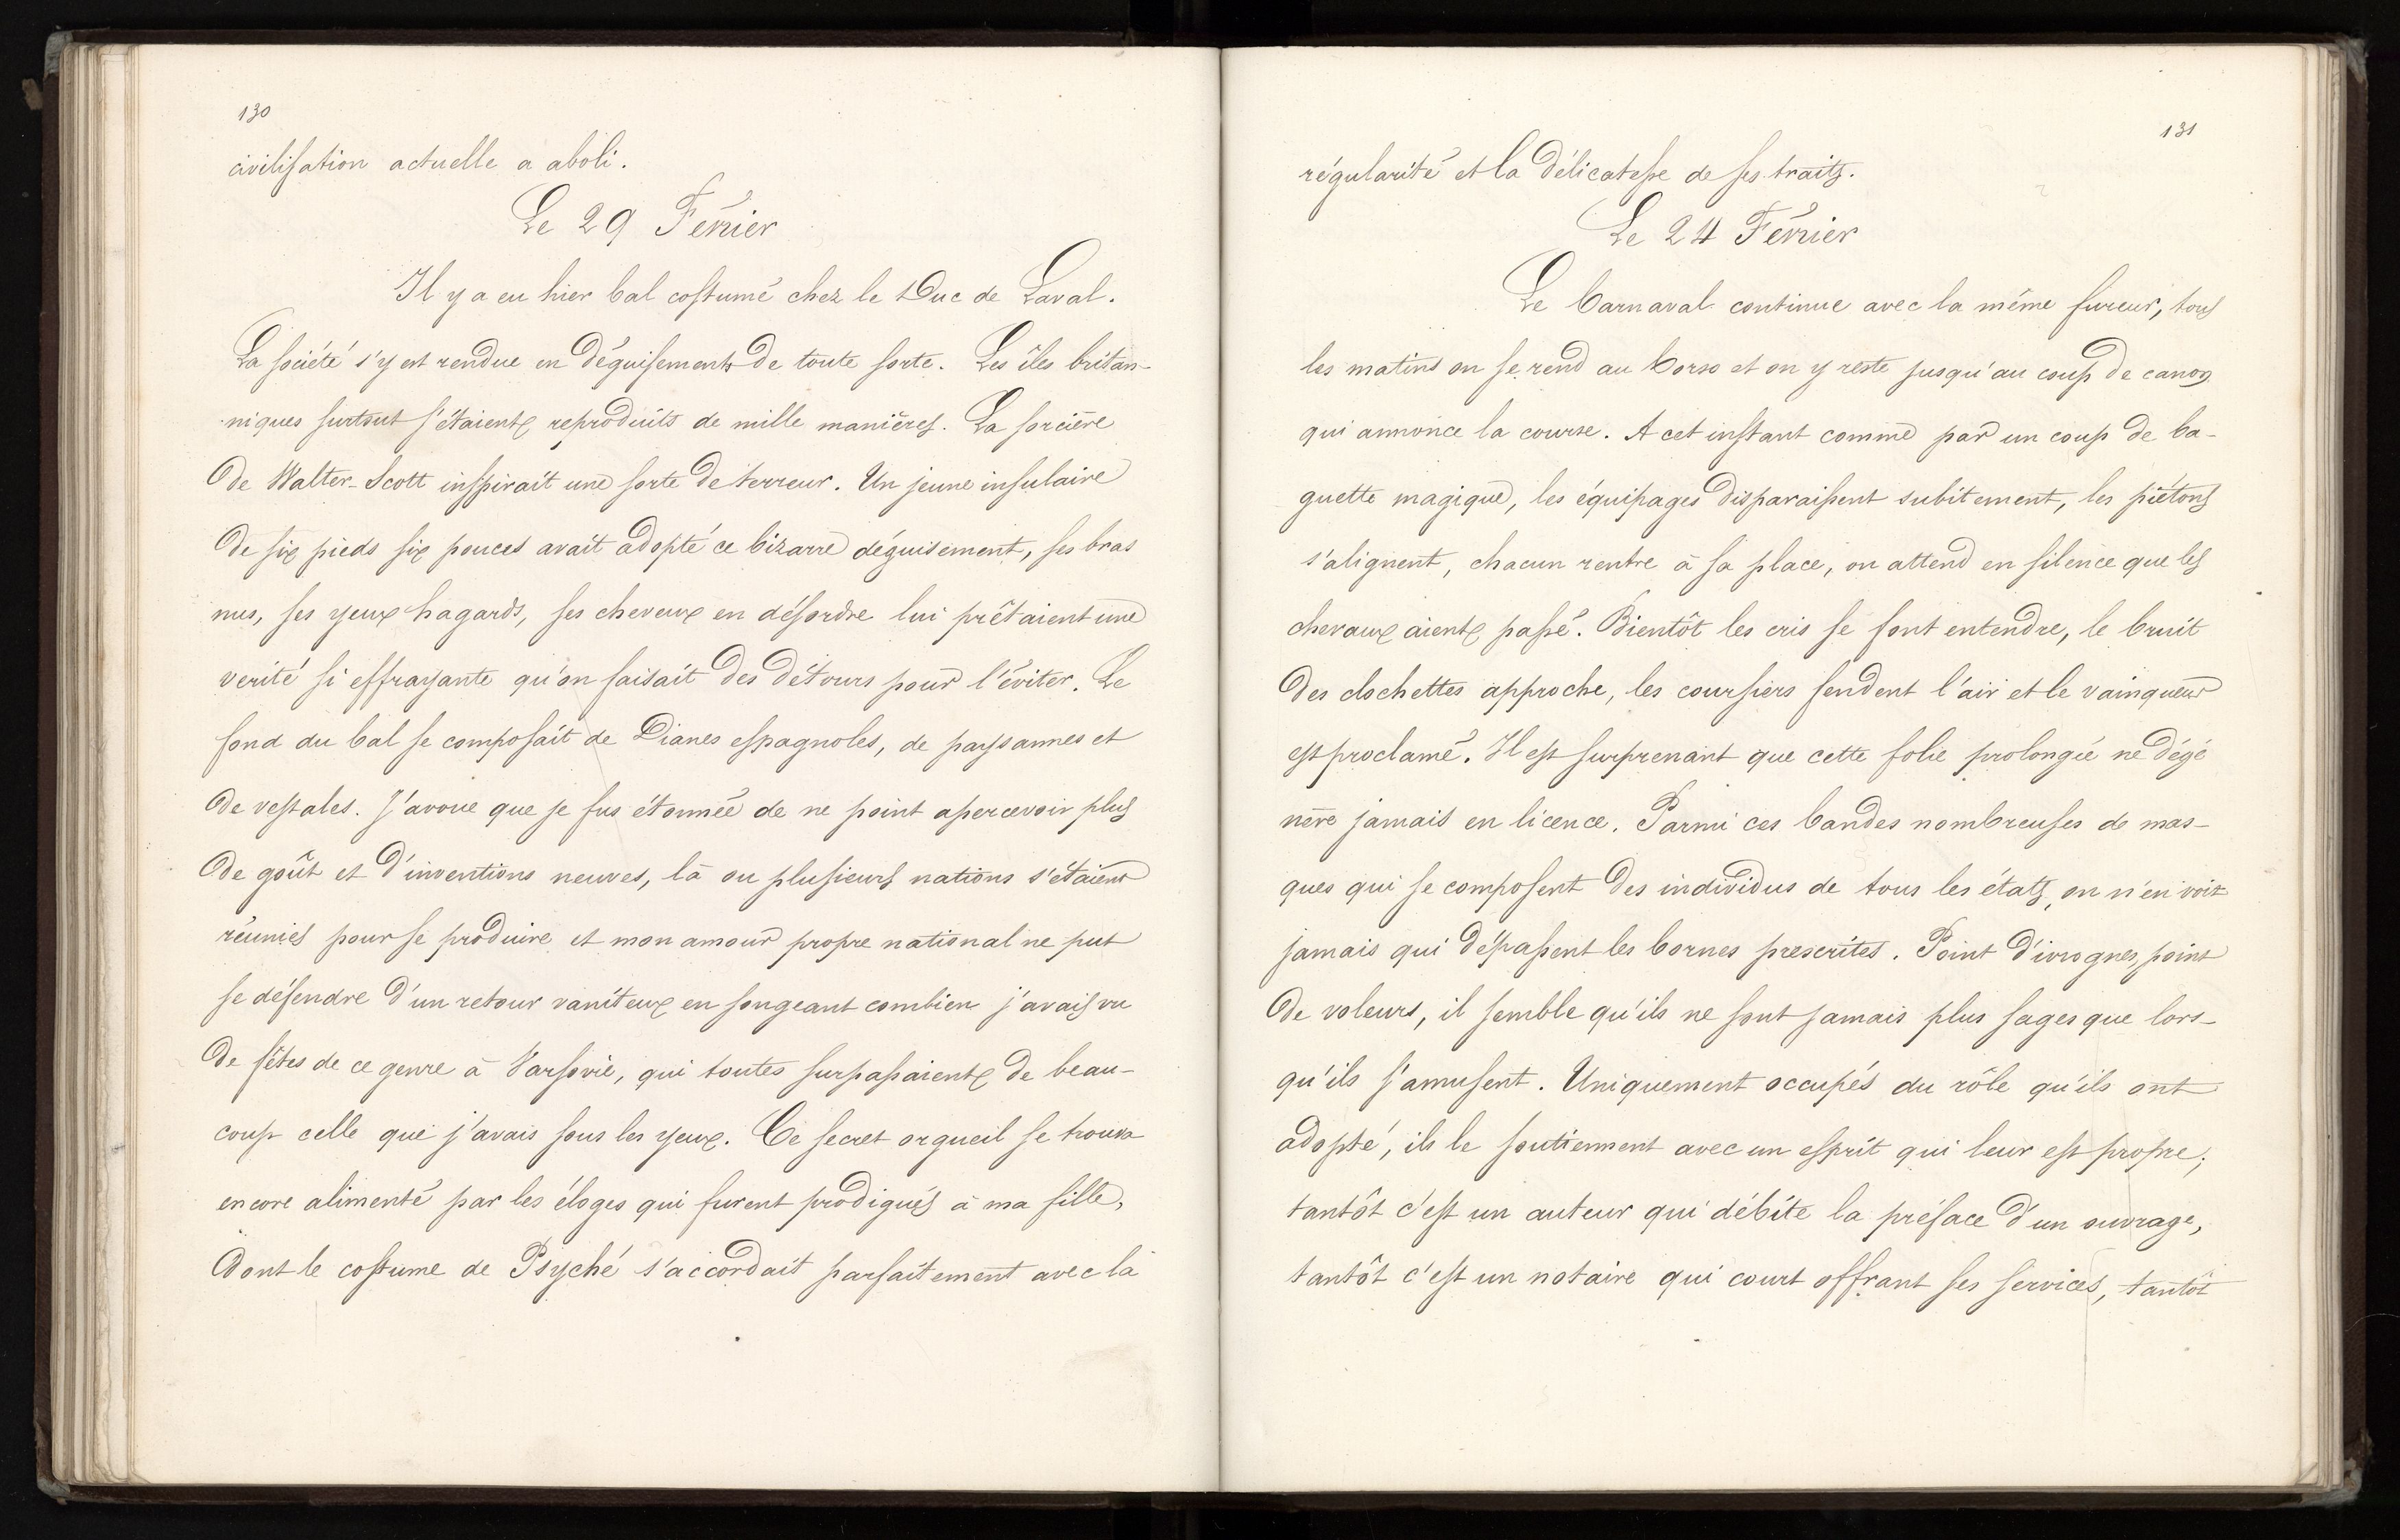 130
civilisation actuelle a aboli.
Le 29 Février
Il y a eu hier bal costumé chez le Duc de Laval.
La société s'y est rendue en déguisements de toute sorte. Les îles britan-
niques surtout s'étaient reproduits de mille manières. La sorcière
de Walter-Scott inspirait une sorte de terreur. Un jeune insulaire
de six pieds six pouces avait adopté ce bizarre déguisement, ses bras
nus, ses yeux hagards, ses cheveux en désordre lui prêtaient une
verité si effrayante qu'on faisait des détours pour l'éviter. Le
fond du bal se composait de Dianes espagnoles, de paysannes et
de vestales. J'avoue que je fus étonnée de ne point apercevoir plus
de goût et d'inventions neuves, là ou plusieurs nations s'étaient
réunies pour se produire et mon amour propre national ne put
se défendre d'un retour vaniteux en songeant combien j'avais vu
de fêtes de ce genre à Varsovie, qui toutes surpassaient de beau-
coup celle que j'avais sous les yeux. Ce secret orgueil se trouva
encore alimenté par les éloges qui furent prodigués à ma fille,
dont le costume de Psyché s'accordait parfaitement avec la
131
régularité et la délicatesse de ses traits.
Le 24 Février
Le Carnaval continue avec la même fureur, tous
les matins on se rend au Corso et on y reste jusqu'au coup de canon
qui annonce la course. A cet instant comme par un coup de ba-
guette magique, les équipages disparaissent subitement, les piétons
s'alignent, chacun rentre à sa place, on attend en silence que les
chevaux aient passé. Bientôt les cris se font entendre, le bruit
des clochettes approche, les coursiers fendent l'air et le vainqueur
est proclamé. Il est surprenant que cette folie prolongée ne dégé
nère jamais en licence. Parmi ces bandes nombreuses de mas-
ques qui se composent des individus de tous les états, on n'en voit
jamais qui dépassent les bornes prescrites. Point d'ivrognes, point
de voleurs, il semble qu'ils ne sont jamais plus sages que lors-
qu'ils s'amusent. Uniquement occupés du rôle qu'ils ont
adopté, ils le soutiennent avec un esprit qui leur est propre;
tantôt c'est un auteur qui débite la préface d'un ouvrage,
tantôt c'est un notaire qui court offrant ses services, tantôt